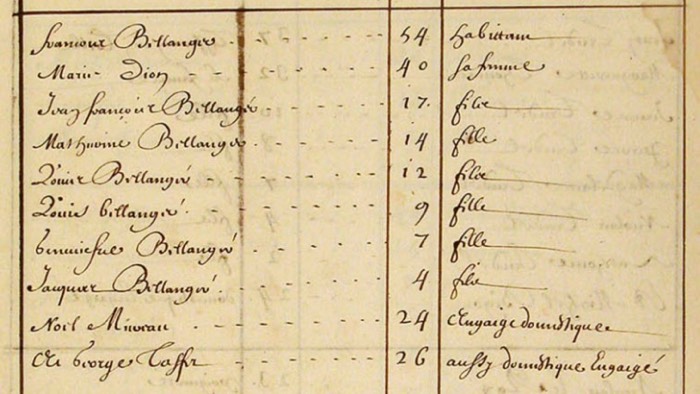 francois Bellanger 54 habittant
Marie Dion 40 sa femme
Jean francois Bellangé 17. filz
Mathurine Bellanger 14 fille
Louis Bellangé 12 filz
Louise bellangé 9 fille
Genuiefue Bellangé 7 fille
Jacques Bellangé 4 filz
Noel 24 Engaige domistique
George 26 aussy domistique Engaigé